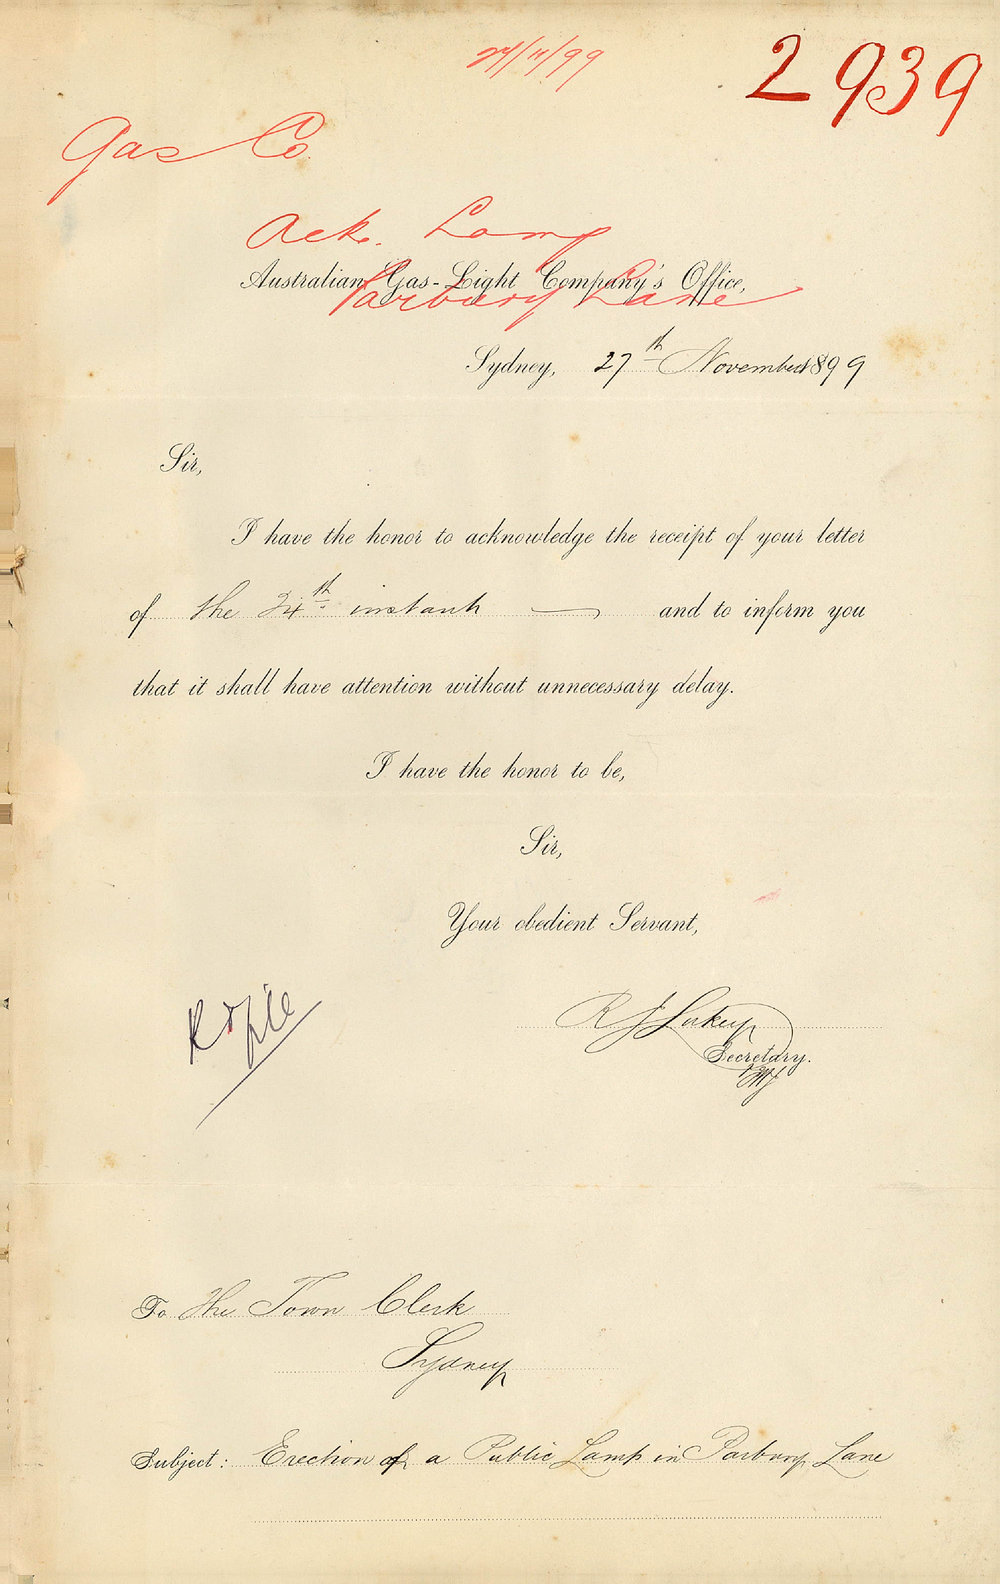 27/11/99
2939
Gas Co.
Ack. Lamp
Parbury Lane
Australian Gas-Light Company's Office,
Sydney, 27th November 1899
Sir,
I have the honor to acknowledge the receipt of your letter
of the 24th instant — and to inform you
that it shall have attention without unnecessary delay.
I have the honor to be,
Sir,
Your obedient Servant,
R J Lukey
Secretary.
To The Town Clerk
Sydney
Subject: Erection of a Public Lamp in Parbury Lane